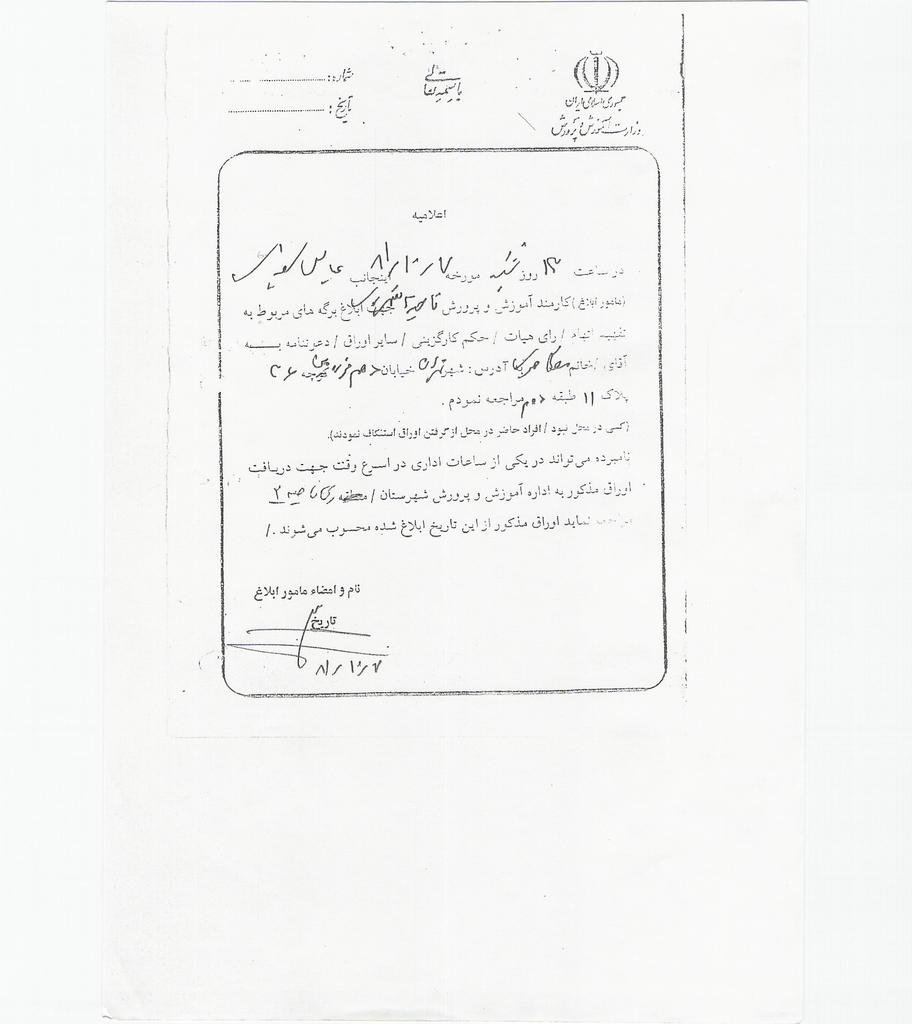 باسمه تعالی
جمهوری اسلامی ایران
وزارت آموزش و پرورش
شماره:
تاریخ:
اعلامیه
در ساعت ۱۳ روز شنبه مورخه ۷/۱۰/۸۱ اینجانب
(مامور ابلاغ) کارمند آموزش و پرورش ناحیه جهت ابلاغ برگه های مربوط به
تفهیم اتهام / رای هیات / حکم کارگزینی / سایر اوراق / دعوتنامه بـــه
آقای / خانم آدرس: شهر تهران خیابان کوچه ۳۶
پلاک ۱۱ طبقه دوم مراجعه نمودم.
(کسی در محل نبود / افراد حاضر در محل از گرفتن اوراق استنکاف نمودند).
نامبرده می‌تواند در یکی از ساعات اداری در اسرع وقت جهت دریافت
اوراق مذکور به اداره آموزش و پرورش شهرستان / منطقه ری ناحیه ۲
مراجعه نماید اوراق مذکور از این تاریخ ابلاغ شده محسوب می‌شوند./
نام و امضاء مامور ابلاغ
تاریخ
۷/۱۰/۸۱